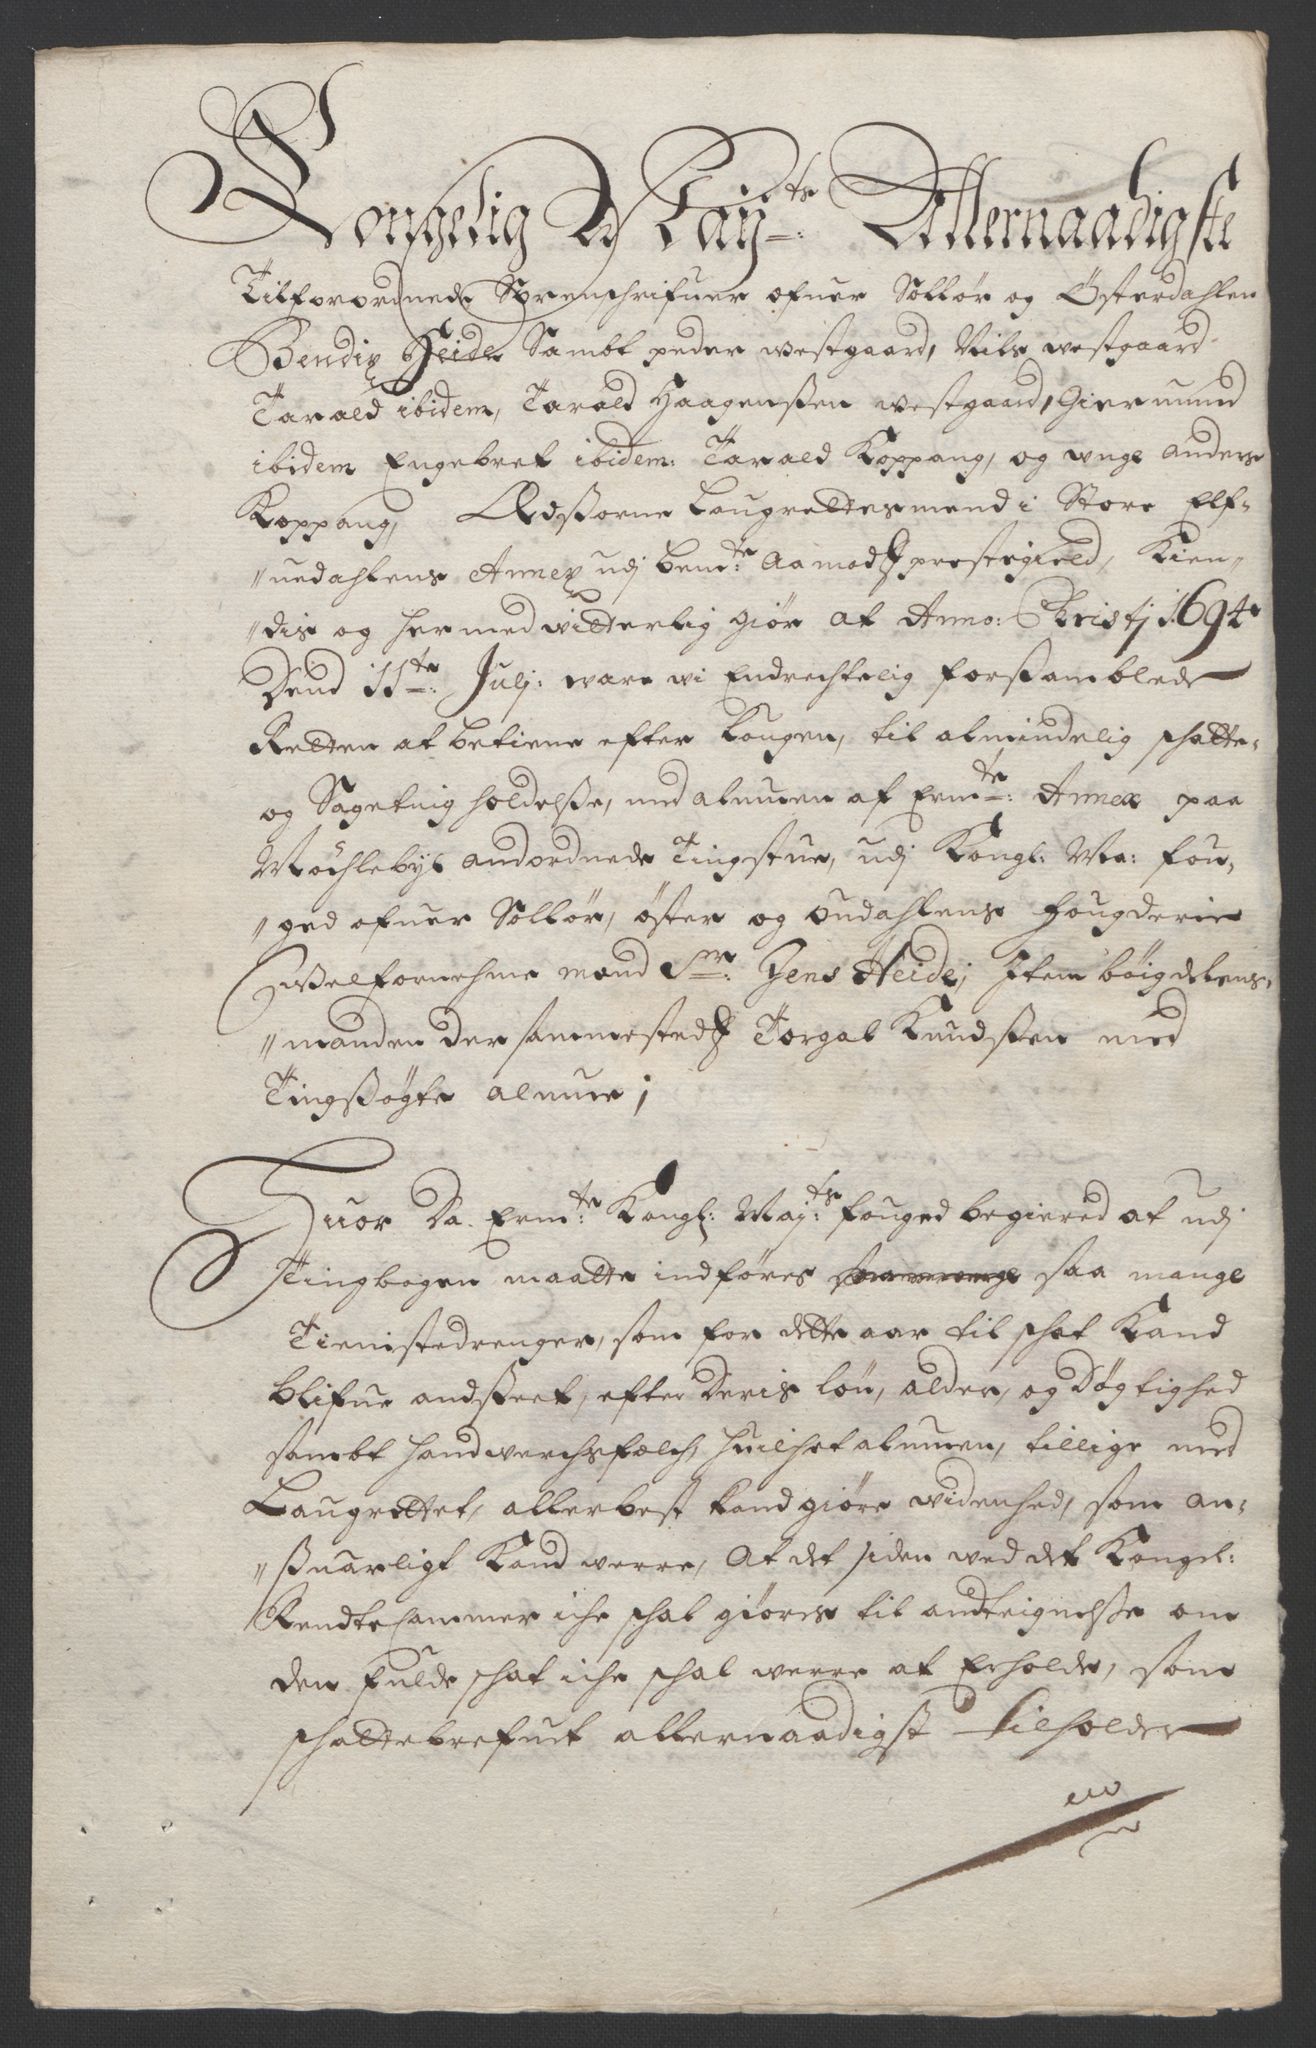 Kongelig Maÿ:ts Allernaadigste
Tilforordnede Sorenschrifuer ofuer Sollör og Österdahlen
Bendix Heide Sambt peder westgaard, Nils westgaard
Tarald ibidem, Tarald Haagenßen westgaard, Giermund
ibidem Engebret ibidem: Tarald Koppang, og unge anders
Koppang, Edßorne Laugrettesmend i Store Elf-
"uedahlens Annex udj bem:te Aamodtz prestegield, Kien"
"dis og hermed witterlig giör at Anno: Christj 1694
Dend 11te: Julj: ware wi Endrechtelig forßamblede
Retten at betiene efter Lougen, til almindelig schatte-
og Sagetnig holdelße, med almuen af Erm:te Annex paa
Möchlebÿe andordnede Tingstue, udj Kongl: Ma: fou-
"ged ofuer Sollör, öster og Oudahlens fougderie
Welfornehme mand Sr: Jens Heide, Item böigdelens-
"manden der sammestedtz Torgal Knudßen med
Tingßögte almue;
Huor Da. Erm:te Kongl: Maÿ:ts fouged begiered at udj
Tingbogen maatte indföres saa mange
Tienistedrenger, som for dette aar til schat Kand
blifue andßeet, efter deris lön, alder, og Dögtighed
sambt handverchsfolch, huilchet almuen, tillige med
Laugrettet, allerbest kand giöre widenhed, som an-
"ßuarligt Kand werre, At det siden ved det Kongel:
Rendte Cammer iche schal giöres til andteignelße om
den fulde schat iche schal werre at Erholde, som
schattebrefuet allernaadigst tilholder